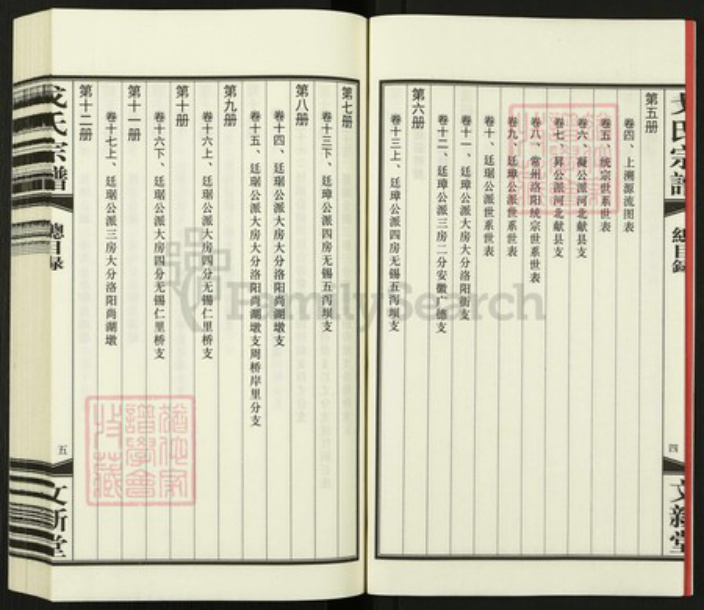 戈氏宗譜
總目録
四
文新堂
第五册
卷四、上溯源流图表
卷五、统宗世系世表
卷六、凝公派河北献县支
卷七、昇公派河北献县支
卷八、常州洛阳统宗世系世表
卷九、廷璋公派世系世表
卷十、廷琚公派世系世表
卷十一、廷璋公派大房洛阳街支
卷十二、廷璋公派三房二分安徽广德支
第六册
卷十三上、廷璋公派四房无锡五泻坝支
第七册
卷十三下、廷璋公派四房无锡五泻坝支
第八册
卷十四、廷琚公派大房大分洛阳尚湖墩支
卷十五、廷琚公派大房大分洛阳尚湖墩支周桥岸里分支
第九册
卷十六上、廷琚公派大房四分无锡仁里桥支
第十册
卷十六下、廷琚公派大房四分无锡仁里桥支
第十一册
卷十七上、廷琚公派三房大分洛阳尚湖墩
第十二册
戈氏宗譜
總目録
五
文新堂
FamilySearch